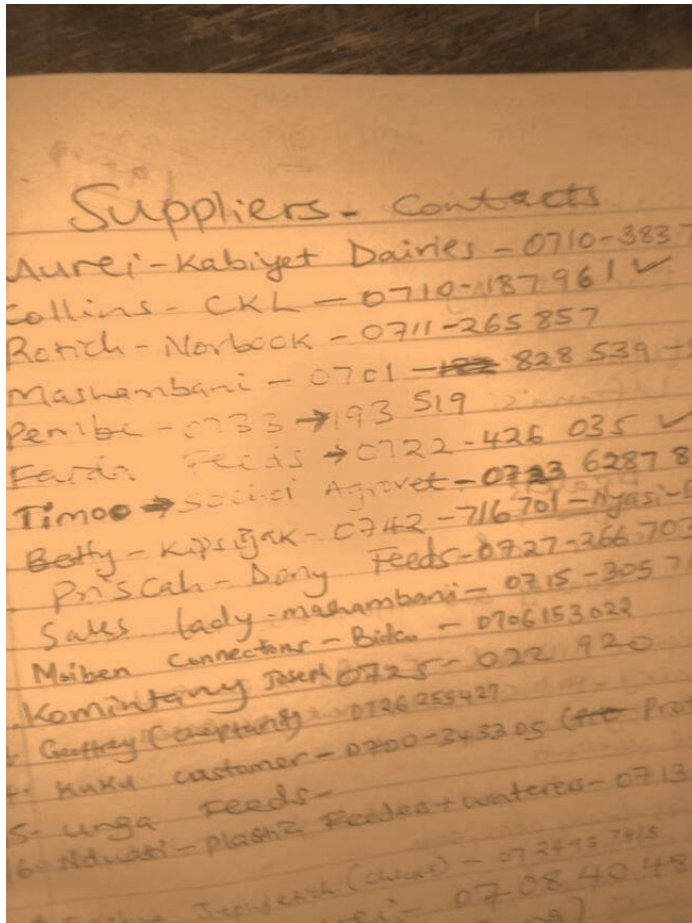 Suppliers - Contacts
Aurei - Kabiyet Dairies - 0710-383 7
Collins - CKL - 0710-187 961 ✓
Rotich - Norbrook - 0711-265 857
Mashambani - 0701 - 828 539
Pembe - 0733 → 193 519
Feeds → 0722-426 035 ✓
Timoo → Sochoi Agrovet - 0723 6287 8
Betty - - 0742 - 716 701 - Nyasi -
Priscah - Dany Feeds - 0727-266 703
Sales lady - mashambani - 0715-305 7
Maiben Connections - Bidco - 0706153022
Joseph 0725 - 022 920
Geoffrey 0726255427
Kuku customer - 0700-343305
5- Unga Feeds -
6- Nduati - plastic Feeders + waterers - 0713
07 08 40 48